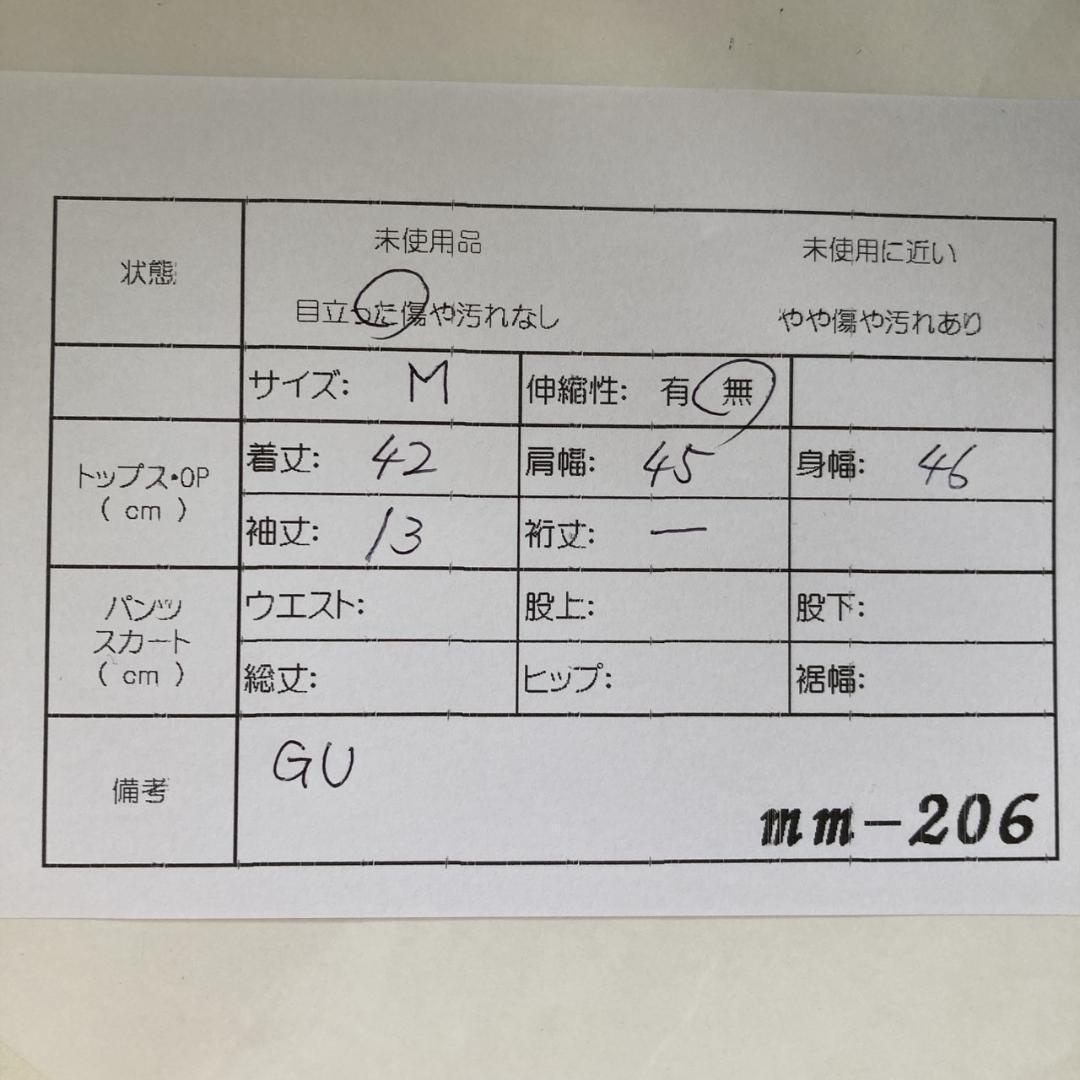 状態
未使用品 未使用に近い
目立った傷や汚れなし やや傷や汚れあり
サイズ: M 伸縮性: 有 無
トップス・OP
( cm )
着丈: 42 肩幅: 45 身幅: 46
袖丈: 13 裄丈: ー
パンツ
スカート
( cm )
ウエスト: 股上: 股下:
総丈: ヒップ: 裾幅:
備考
GU
mm-206